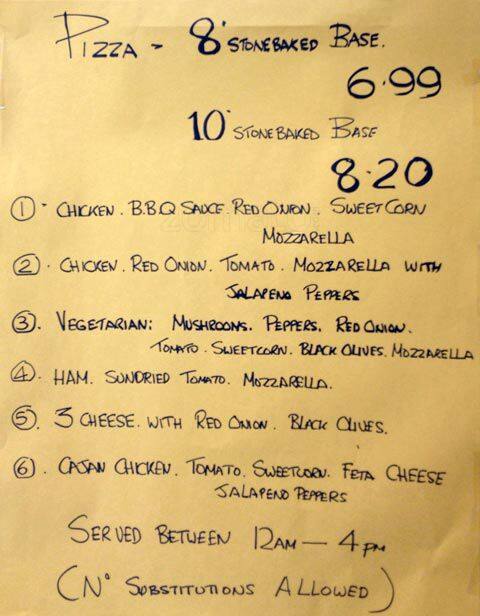 PIZZA - 8" STONEBAKED BASE.
6.99
10" STONEBAKED BASE
8.20
① - CHICKEN. B.B.Q SAUCE. RED ONION. SWEETCORN
MOZZARELLA
②. CHICKEN. RED ONION. TOMATO. MOZZARELLA WITH
JALAPENO PEPPERS
③. VEGETARIAN: MUSHROOMS. PEPPERS. RED ONION.
TOMATO. SWEETCORN. BLACK OLIVES. MOZZARELLA
④. HAM. SUNDRIED TOMATO. MOZZARELLA.
⑤. 3 CHEESE. WITH RED ONION. BLACK OLIVES.
⑥. CAJAN CHICKEN. TOMATO. SWEETCORN. FETA CHEESE
JALAPENO PEPPERS
SERVED BETWEEN 12AM - 4PM
(N° SUBSTITUTIONS ALLOWED)